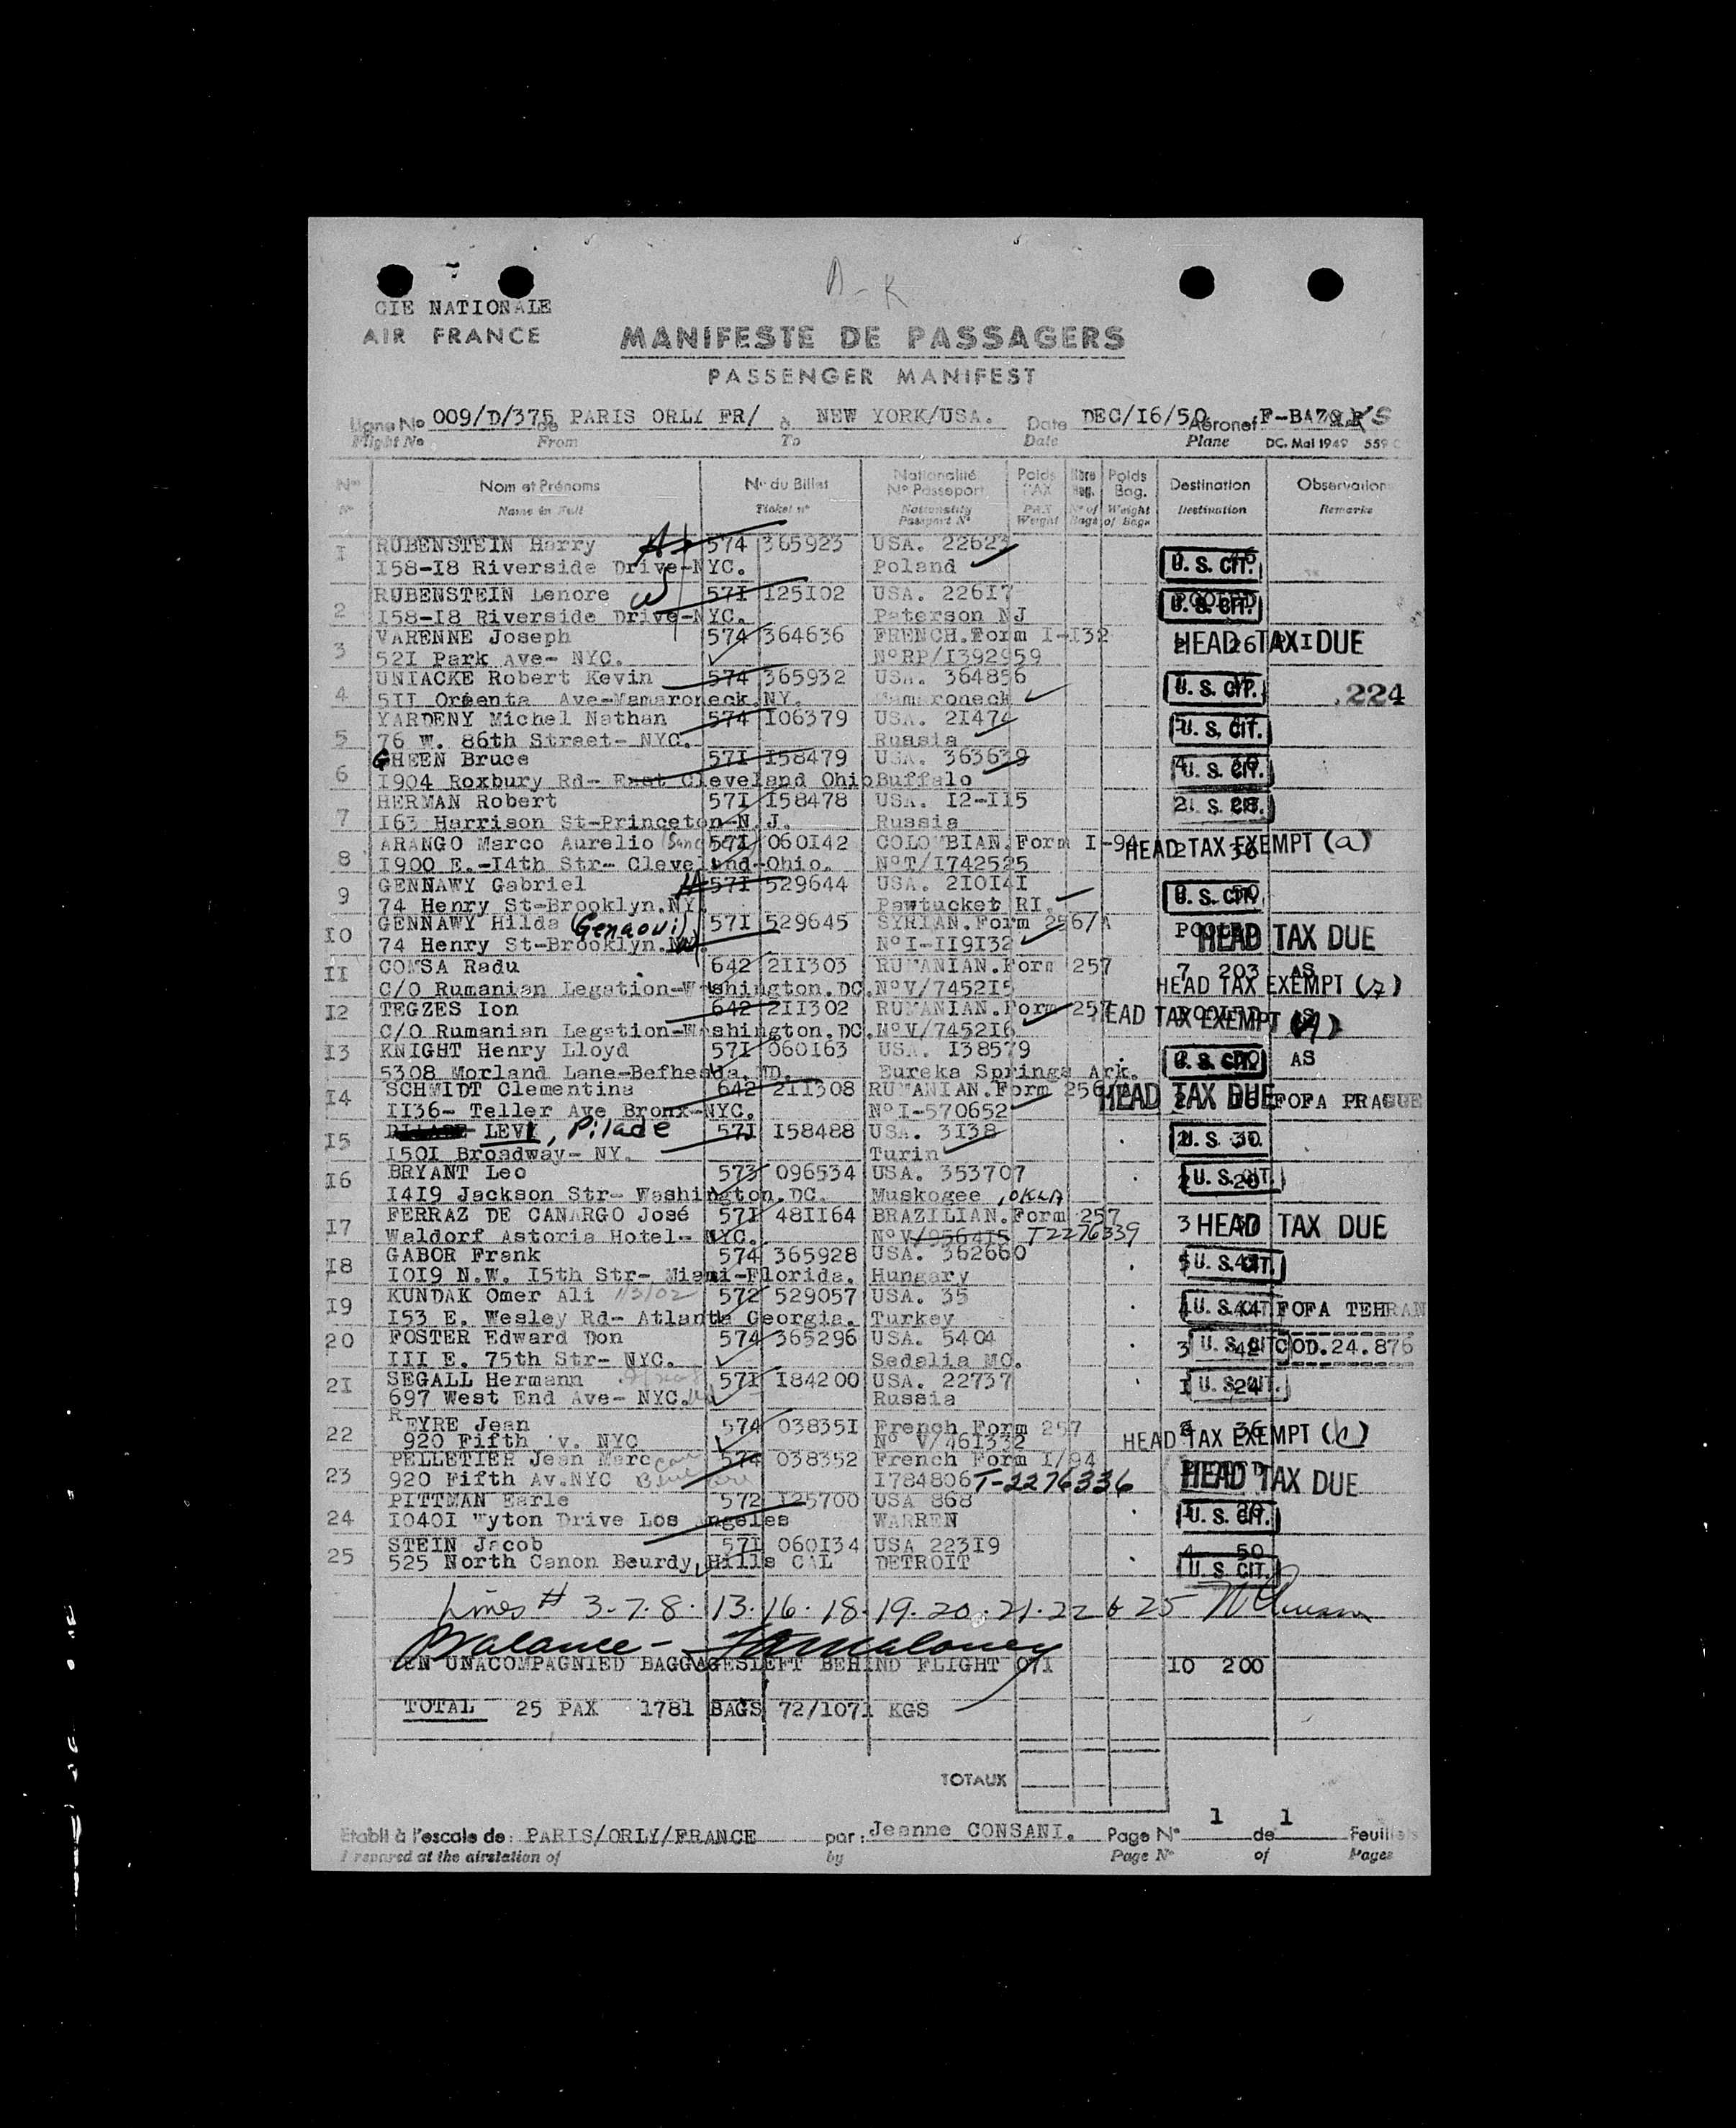 A-K
CIE NATIONALE
AIR FRANCE
MANIFESTE DE PASSAGERS
PASSENGER MANIFEST
Ligne No 009/D/375 de PARIS ORLY FR/ à NEW YORK/USA. Date DEC/I6/50 Aéronef F-BAZ S
Flight No From To Date Plane DC. Mai 1949 559 C
Nos Nom et Prénoms No du Billet Nationalité No Passeport Poids PAX Nbre Bag. Poids Bag. Destination Observations
No Name in Full Ticket no Nationality Passport No PAX Weight No of Bags Weight of Bags Destination Remarks
I RUBENSTEIN Harry 574 365923 USA. 22623
I58-I8 Riverside Drive-NYC. Poland U. S. CIT.
2 RUBENSTEIN Lenore 57I I25I02 USA. 226I7 POOLED
I58-I8 Riverside Drive-NYC. Paterson NJ U. S. CIT.
3 VARENNE Joseph 574 364636 FRENCH.Form I-I32 HEAD TAX DUE
52I Park Ave- NYC. NoRP/I392959
4 UNIACKE Robert Kevin 574 365932 USA. 364856 U. S. CIT. .224
5II Orienta Ave-Mamaroneck.NY. Mamaroneck
5 YARDENY Michel Nathan 574 I06379 USA. 2I474 U. S. CIT.
76 W. 86th Street- NYC. Russia
6 GHEEN Bruce 57I I58479 USA. 363639
I904 Roxbury Rd- East Cleveland Ohio Buffalo U. S. CIT.
7 HERMAN Robert 57I I58478 USA. I2-II5 U. S. CIT.
I63 Harrison St-Princeton-N.J. Russia
8 ARANGO Marco Aurelio 57I 060I42 COLOMBIAN.Form I-94 HEAD TAX EXEMPT (a)
I900 E.-I4th Str- Cleveland-Ohio. NoT/I742525
9 GENNAWY Gabriel 57I 529644 USA. 2I0I4I U. S. CIT.
74 Henry St-Brooklyn.NY. Pawtucket RI.
I0 GENNAWY Hilda (Genaoui) 57I 529645 SYRIAN.Form 256/A POOLED HEAD TAX DUE
74 Henry St-Brooklyn.NY. NoI-II9I32
II COMSA Radu 642 2II303 RUMANIAN.Form 257 7 203 AS
C/O Rumanian Legation-Washington.DC. NoV/7452I5 HEAD TAX EXEMPT
I2 TEGZES Ion 642 2II302 RUMANIAN.Form 257 HEAD TAX EXEMPT AS
C/O Rumanian Legation-Washington.DC. NoV/7452I6
I3 KNIGHT Henry Lloyd 57I 060I63 USA. I38579 U. S. CIT. AS
5308 Morland Lane-Befhesda.MD. Eureka Springs Ark.
I4 SCHMIDT Clementina 642 2II308 RUMANIAN.Form 256 HEAD TAX DUE FOFA PRAGUE
II36- Teller Ave Bronx-NYC. NoI-570652
I5 LEVI, Pilade 57I I58488 USA. 3I38 2 30 U. S.
I50I Broadway- NY. Turin
I6 BRYANT Leo 573 096534 USA. 353707 U. S. CIT.
I4I9 Jackson Str- Washington.DC. Muskogee ,OKLA
I7 FERRAZ DE CANARGO José 57I 48II64 BRAZILIAN.Form 257 3 HEAD TAX DUE
Waldorf Astoria Hotel- NYC. NoV/9564I5 T2276339
I8 GABOR Frank 574 365928 USA. 362660 U. S. CIT.
I0I9 N.W. I5th Str- Miami-Florida. Hungary
I9 KUNDAK Omer Ali 1/3/02 572 529057 USA. 35 U. S. CIT FOFA TEHRAN
I53 E. Wesley Rd- Atlanta Georgia. Turkey
20 FOSTER Edward Don 574 365296 USA. 5404 3 42 U. S. CIT COD.24.876
III E. 75th Str- NYC. Sedalia MO.
2I SEGALL Hermann 57I I84200 USA. 22737 I 24 U. S. CIT.
697 West End Ave- NYC. Russia
22 REYRE Jean 574 03835I French Form 257 36
920 Fifth v. NYC No V/46I332 HEAD TAX EXEMPT
23 PELLETIER Jean Marc 574 038352 French Form I/94
920 Fifth Av.NYC I784806 T-2276336 HEAD TAX DUE
24 PITTMAN Earle 572 I25700 USA 868
I040I Wyton Drive Los Angeles WARREN U. S. CIT.
25 STEIN Jacob 57I 060I34 USA 223I9 4 50
525 North Canon Beurdy Hills CAL DETROIT U. S CIT.
Lines # 3-7-8-13-16-18-19-20-21-22 & 25
Balance - Maloney
TEN UNACOMPAGNIED BAGGAGES LEFT BEHIND FLIGHT 07I I0 200
TOTAL 25 PAX I781 BAGS 72/1071 KGS
TOTAUX
Etabli à l'escale de: PARIS/ORLY/FRANCE par: Jeanne CONSANI. Page No 1 de 1 Feuillets
Prepared at the airstation of by Page No of Pages